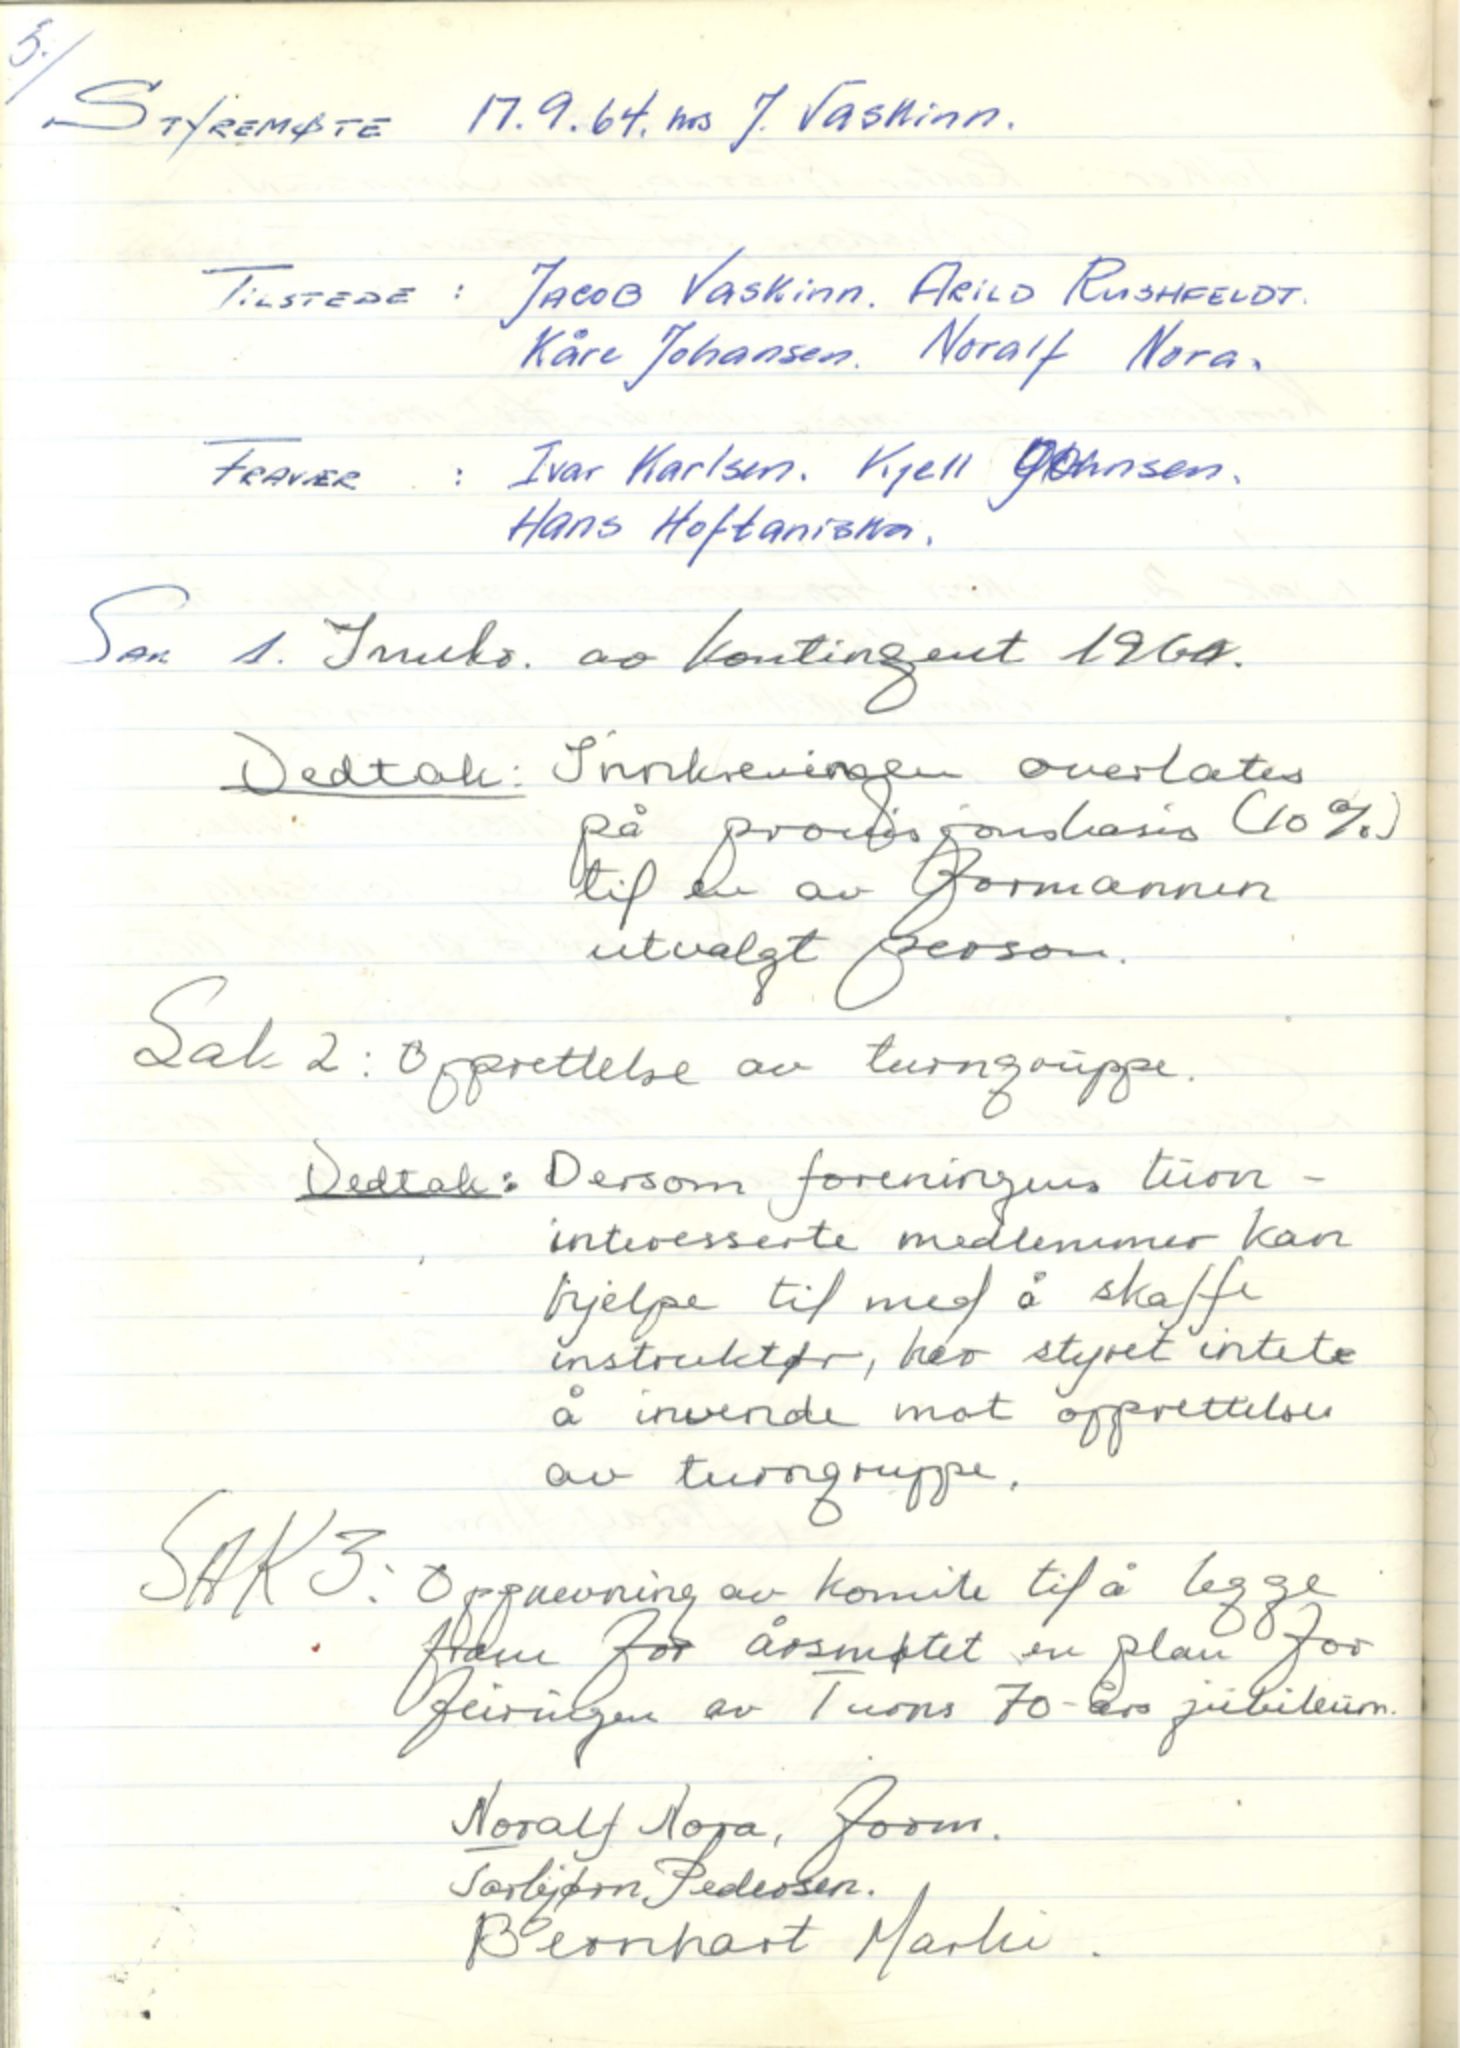 5./
STYREMØTE 17.9.64. hos J. Vaskinn.
TILSTEDE : JACOB Vaskinn. ARILD RUSHFELDT.
Kåre Johansen. Noralf Nora.
FRAVÆR : Ivar Karlsen. Kjell Johnsen.
Hans Hoftaniska.
SAK 1. Innkr. av kontingent 1964.
Vedtak: Innkrevingen overlates
på provisjonsbasis (10%)
til en av formannen
utvalgt person.
Sak 2: Opprettelse av turngruppe.
Vedtak: Dersom foreningens turn-
interesserte medlemmer kan
hjelpe til med å skaffe
instruktør, har styret intet
å invende mot opprettelse
av turngruppe.
SAK 3: Oppnevning av komite til å legge
fram for årsmøtet en plan for
feiringen av Turns 70-års jubileum.
Noralf Nora, form.
Torbjørn Pedersen.
Bernhart